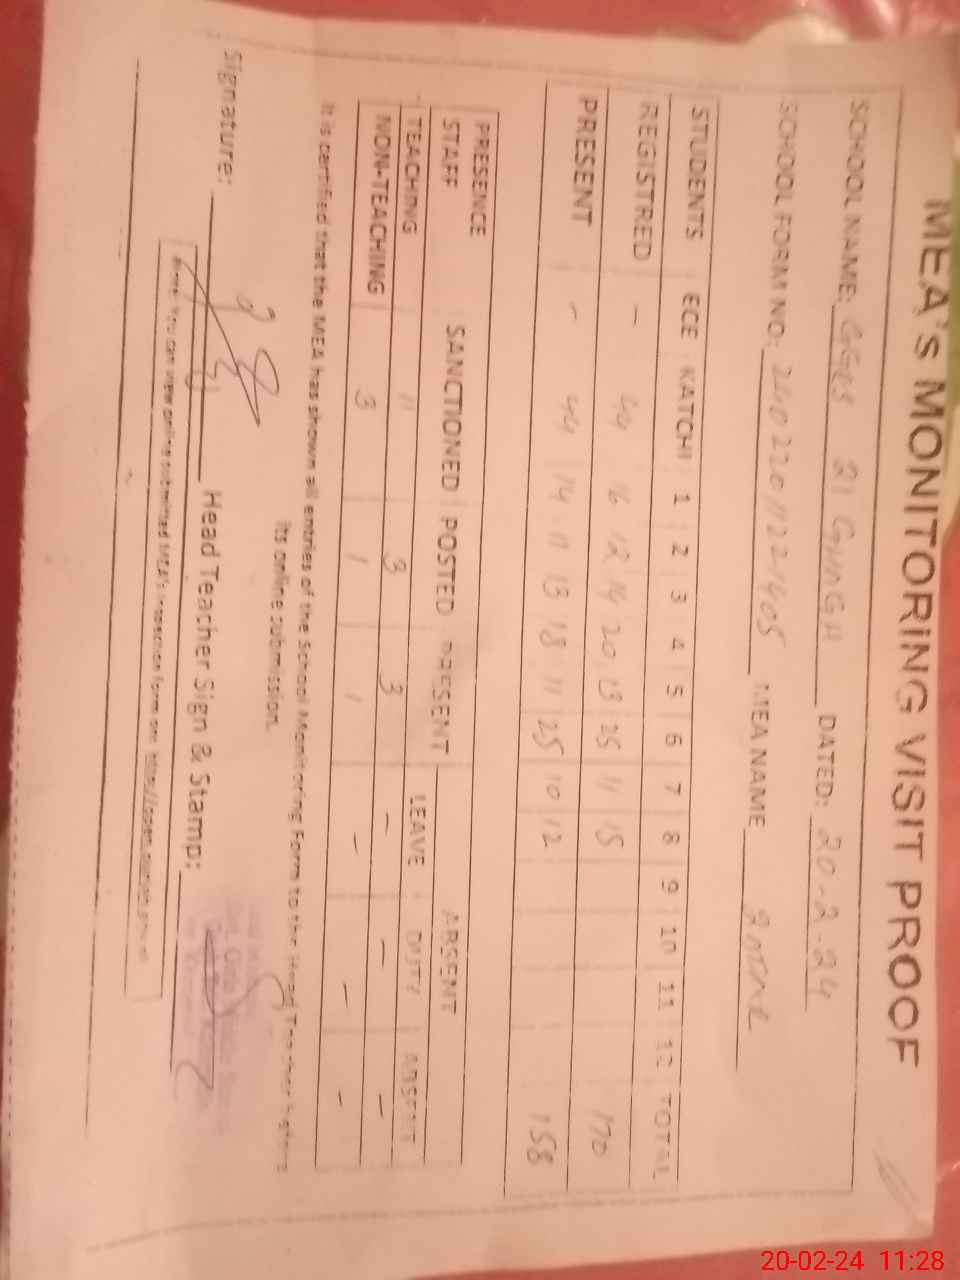 MEA's MONITORING VISIT PROOF
SCHOOL NAME: GGPS 21 GHAGH DATED: 20-2-24
SCHOOL FORM NO: 2402201122-1405 MEA NAME
STUDENTS ECE KATCHI 1 2 3 4 5 6 7 8 9 10 11 12 TOTAL
REGISTRED - 44 16 12 14 20 13 25 11 15 170
PRESENT - 44 14 11 13 18 11 25 10 12 158
PRESENCE SANCTIONED POSTED PRESENT ABSENT
STAFF LEAVE DUTY ABSENT
TEACHING 11 3 3 - - -
NON-TEACHING 3 1 1 - - -
It is certified that the MEA has shown all entries of the School Monitoring Form to the Head Teacher before
its online submission.
Signature: Head Teacher Sign & Stamp:
Note: You can view online submitted MEA's inspection form on:
20-02-24 11:28